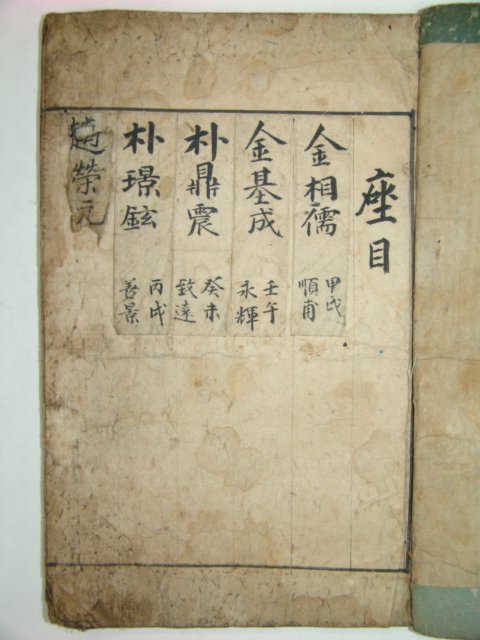 座目
金相儒 甲戌 順甫
金基成 壬午 永輝
朴鼎震 癸未 致遠
朴璟鉉 丙戌 善景
趙榮元